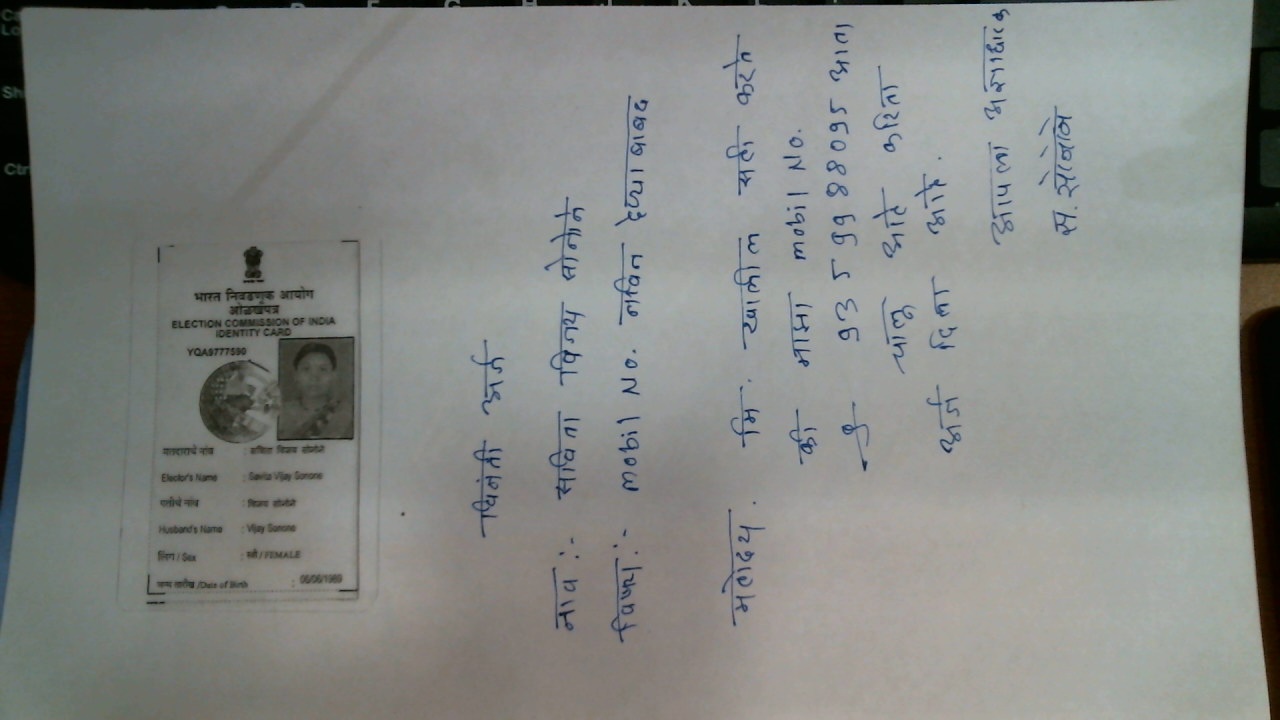 भारत निवडणूक आयोग
ओळखपत्र
ELECTION COMMISSION OF INDIA
IDENTITY CARD
YQA9777590
मतदाराचे नांव : सविता विजय सोनोने
Elector's Name : Savita Vijay Sonone
पतीचे नांव : विजय सोनोने
Husband's Name : Vijay Sonone
लिंग / Sex : स्त्री / FEMALE
जन्म तारीख /Date of Birth : 06/06/1989
विनंती अर्ज
नाव :- सविता विजय सोनोने
विषय :- mobil No. नविन देण्याबाबत
महोदय.
मि. खालील सही करते
की माझा mobil No.
9359988095 आता
चालु आहे करिता
अर्ज दिला आहे.
आपला
स. सोनोने